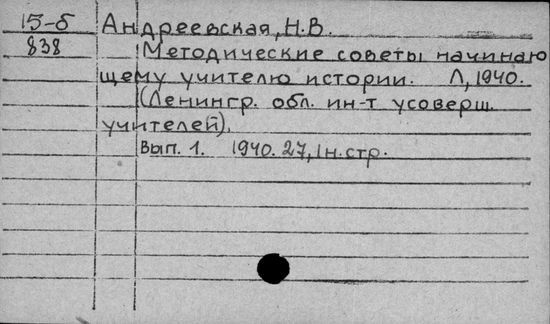 15-б Андреевская, Н.В.
838 Методические советы начинаю
щему учителю истории. Л, 1940.
(Ленингр. обл. ин-т усоверш.
учителей).
Вып. 1. 1940. 27, 1 н.стр.